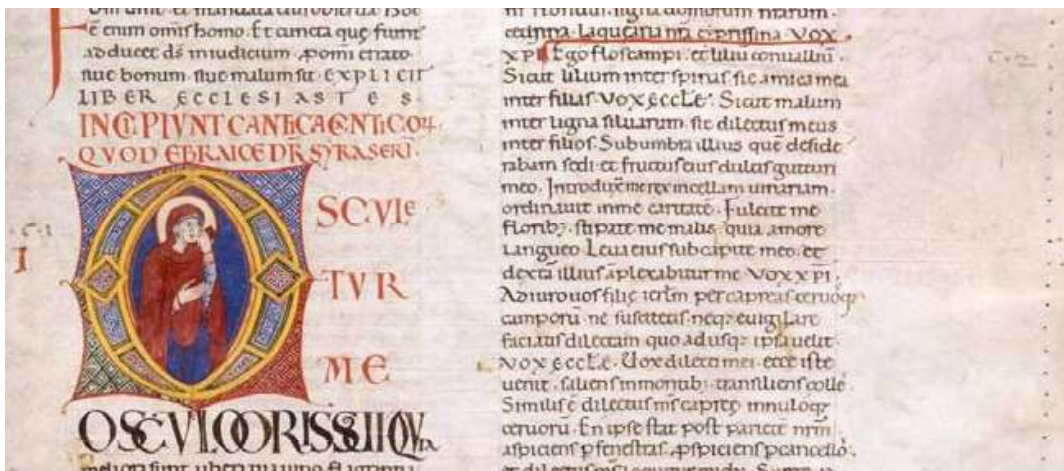 ē enim omis homo. Et cuncta quę fiunt
adducet ds in iudicium ꝓ omi errato
siue bonum siue malum sit EXPLICIT
LIBER ECCLESIASTES.
INCIPIVNT CANTICA CANTICOꝜ
QVOD EBRAICE DR SYRASERI.
C.1
I
O
SCVLE
TVR
ME
OSCVLO ORIS SUI QVIA
meliora sunt ubera tua uino
tigna domorum nrarum
cedrina. laquearia nra ciprissina. VOX
XPI. Ego flos campi. et liliū conualliū.
C.2
Sicut lilium inter spinas sic amica mea
inter filias. VOX ECCLE. Sicut malum
inter ligna siluarum. sic dilectus meus
inter filios. Sub umbra illius quē deside
rabam sedi. et fructus eius dulcis gutturi
meo. Introduxit me rex in cellam uinariam.
ordinauit in me caritatē. Fulcite me
florib; stipate me malis. quia amore
langueo. Leua eius sub capite meo. et
dextā illius āplexabitur me. VOX XPI.
Adiuro uos filię ierlm per capreas ceruosq;
camporū ne suscitetis. neq; euigilare
faciatis dilectam quo adusq; ipsa uelit.
VOX ECCLE. Uox dilecti mei. ecce iste
uenit. saliens in montib; transiliens colles.
Similis ē dilectus ms capreę innuloq;
ceruorū. En ipse stat post parietē nrm
aspiciens p fenestras. ꝓspiciens p cancellos.
et dilectus ms loquitur michi. Surge